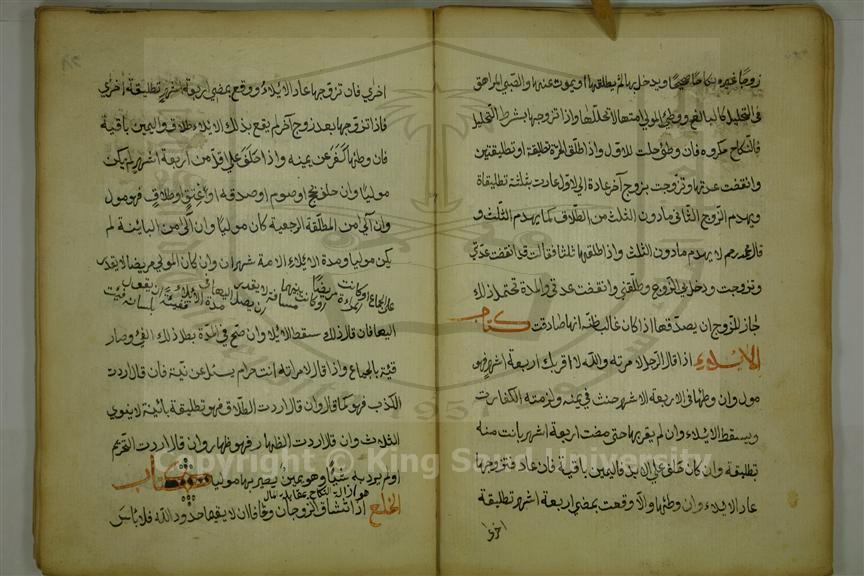 زوجًا غيره نكاحًا صحيحًا ويدخل بها ثم يطلقها او يموت عنها والصبي المراهق
في التحليل كالبالغ ووطئ المولي امته لا تحللها واذا تزوجها بشرط التحليل
فالنكاح مكروه فان وطئ حلت للاول واذا طلق المرة تطليقة او تطليقتين
وانقضت عدتها وتزوجت بزوج آخر عادة الي الاول عادت بثلثة تطليقاة
ويهدم الزوج الثاني مادون الثلث من الطلاق كما يهدم الثلث و
قال محمد رحم لا يهدم مادون الثلث واذا طلقها ثلثا فقالت قد انقضت عدتي
وتزوجت ودخل بي الزوج وطلقني وانقضت عدتي والمدة تحتمل ذلك
جاز للزوج ان يصدقها اذا كان غالبا ظنه انها صادقت كتاب
الايلاء اذا قال الرجل لامرته والله لا اقربك اربعة اشهر فهو
مول وان وطئها في الاربعة الاشهر حنث في يمنه ولزمته الكفارت
ويسقط الايلاء وان لم يقربها حتي مضت اربعة اشهر بانت منه
تطليقة وان كان حلف علي الابد فاليمين باقية فان عاد فتزوجها
عاد الايلاء وان وطئها والا وقعت بمضي اربعة اشهر تطليقة
اخرا
اخري فان تزوجها عاد الايلاء ووقع بمضي اربعة اشهر تطليقة اخري
فاذا تزوجها بعد زوج آخر لم يقع بذلك الايلاء طلاق واليمين باقية
فان وطئها كفر عن يمينه واذا حلف علي اقل من اربعة اشهر لم يكن
موليا وان حلف بحج او صوم او صدقه او اعتق او طلاق فهو مول
وان آلي من المطلقة الرجعية كان موليا وان آلي من البائنة لم
يكن موليا ومدة الايلاء الامة شهران وان كان المولي مريضا لا يقدر
علي الجماع او كانت مريضا
او كانت بينهما مسافة لا يقدر ان يصل اليها في مدة الايلاء ففيئه ان يقول بلسانه فئت
اليها فان قال ذلك سقط الايلاء وان صح في المدة بطل ذلك الفئ وصار
فيئه بالجماع واذا قال لامراته انت حرام يسئل عن نيته فان قال اردت
الكذب فهو كما قال وان قال اردت الطلاق فهو تطليقة بائنة لا ينوي
الثلاث وان قال اردت الظهار فهو ظهار وان قال اردت التحريم
اولم يرد به شيئا وهو يمين يصير بها موليا كتاب
هو ازالة النكاح بمقابلة مال
الخلع اذا تشاق الزوجان وخافا ان لا يقيما حدود الله فلا باس
Copyright © King Saud University
1957